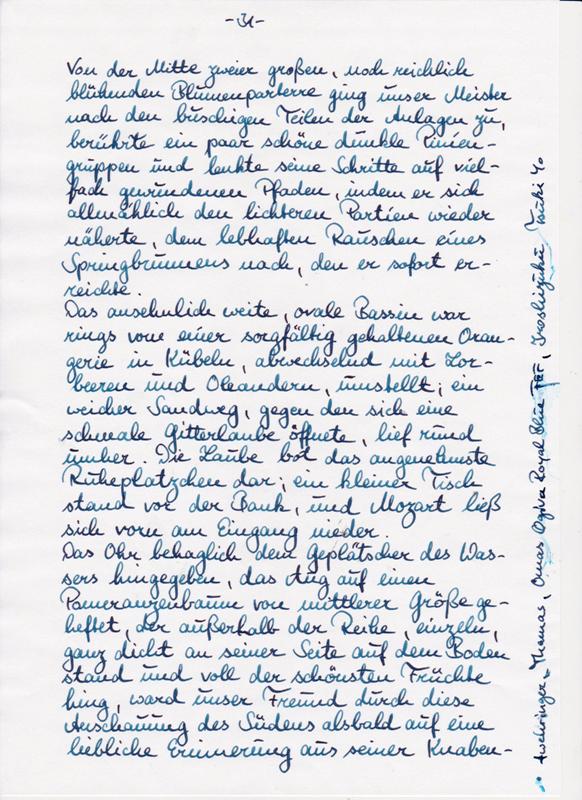 -31-
Von der Mitte zweier großen, noch reichlich
blühenden Blumenparterre ging unser Meister
nach den buschigen Teilen der Anlagen zu,
berührte ein paar schöne dunkle Pinien-
gruppen und lenkte seine Schritte auf viel-
fach gewundenen Pfaden, indem er sich
allmählich den lichteren Partien wieder
näherte, dem lebhaften Rauschen eines
Springbrunnens nach, den er sofort er-
reichte.
Das ansehnlich weite, ovale Bassin war
rings von einer sorgfältig gehaltenen Oran-
gerie in Kübeln, abwechselnd mit Lor-
beeren und Oleandern, umstellt; ein
weicher Sandweg, gegen den sich eine
schmale Gitterlaube öffnete, lief rund
umher. Die Laube bot das angenehmste
Ruheplätzchen dar; ein kleiner Tisch
stand vor der Bank, und Mozart ließ
sich vorn am Eingang nieder.
Das Ohr behaglich dem Geplätscher des Was-
sers hingegeben, das Aug auf einen
Pomeranzenbaum von mittlerer Größe ge-
heftet, der außerhalb der Reihe, einzeln,
ganz dicht an seiner Seite auf dem Boden
stand und voll der schönsten Früchte
hing, ward unser Freund durch diese
Anschauung des Südens alsbald auf eine
liebliche Erinnerung aus seiner Knaben-
Thomas, Omas Ogiva Royal Blue, Iroshizuku Tsuki Yo